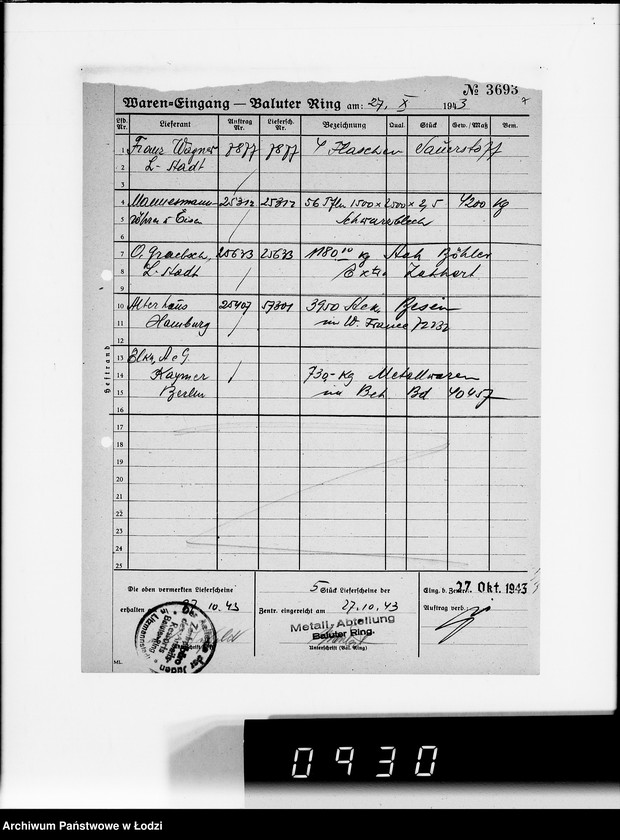 № 3693
Waren-Eingang — Baluter Ring am: 27. X 1943
Lfd. Nr. Lieferant Auftrag Nr. Liefersch. Nr. Bezeichnung Qual. Stück Gew./Maß Bem.
1 Franz Wagner 7877 7877 4 Flaschen Sauerstoff
2 L.-Stadt
3
4 Mannesmann- 25312 25312 56 Tfln 1500 x 2500 x 2,5 4200 kg
5 röhren & Eisen Schwarzblech
6
7 O. 25673 25673 1180 kg Böhler
8 L-Stadt Extra
9
10 25407 57301 3950 Stck. Besen
11 Hamburg im W. France 72732
12
13 A.G.
14 Kaymer 730,- kg Metallwaren
15 Berlin im Bd 40457
16
17
18
19
20
21
22
23
24
25
Heftrand
Die oben vermerkten Lieferscheine
erhalten 27.10.43
5 Stück Lieferscheine der
Zentr. eingereicht am 27.10.43
Metall-Abteilung
Baluter Ring.
Unterschrift (Bal. Ring)
Eing. b. Zentr. 27. Okt. 1943
Auftrag verb.
der Juden
in Litzmannstadt
ML.
0930
Archiwum Państwowe w Łodzi